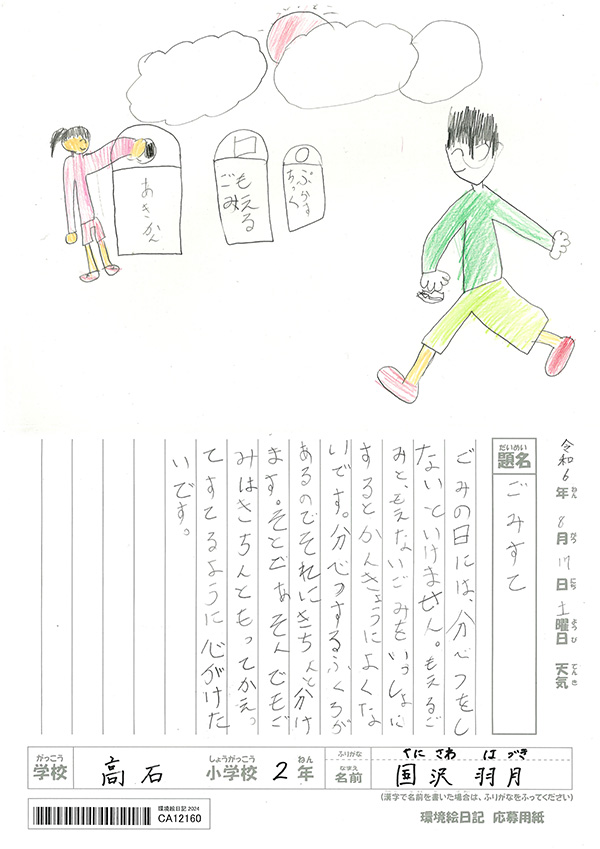 あきかん
もえる
ごみ
ぷらす
ちっく
令和6年 8月17日 土曜日 天気
ねん がつ にち ようび てんき
だいめい
題名
ごみすて
ごみの日には、分べつをし
ないといけません。もえるご
みと、もえないごみをいっしょに
するとかんきょうによくな
いです。分べつするふくろが
あるのでそれにきちんと分け
ます。そとであそんでもご
みはきちんともってかえっ
てすてるように心がけた
いです。
がっこう しょうがっこう ねん
学校 高石 小学校 2年
ふりがな くにさわ はづき
なまえ
名前 国沢 羽月
(漢字で名前を書いた場合は、ふりがなをふってください)
環境絵日記 2024
CA12160
環境絵日記 応募用紙